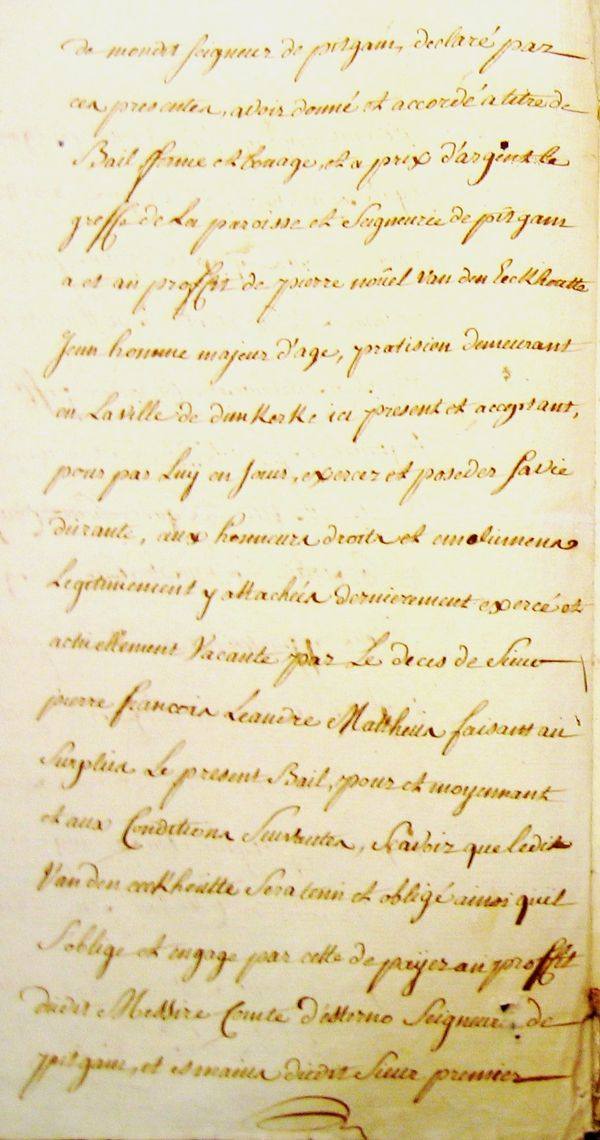 de mondit seigneur de pitgam, declaré par
ces presentes, avoir donné et accordé a titre de
Bail fferme et Louage, et a prix d'argent le
greffe de La paroisse et Seigneurie de pitgam
a et au proffit de pierre noüel Van den Eeckhoutte
Jeun homme majeur d'age, pratision demeurant
en La ville de dunkerke ici present et acceptant,
pour par Luy en Jouir, exercer et posseder sa vie
durante, aux honneurs droits et emolumens
Legitimement y attachées dernierement exercé et
actuellement Vacante par Le deces de Sieur
pierre francois Leandre Mattheus faisant au
Surplus Le present Bail, pour et moyennant
et aux Conditions Suivantes, Scavoir que ledit
Van den eeckhoutte Sera tenu et obligé ainsi quil
S'oblige et engage par cette de payer au proffit
dudit Messire Comte d'esterno Seigneur de
pitgam, et es mains dudit Sieur premier